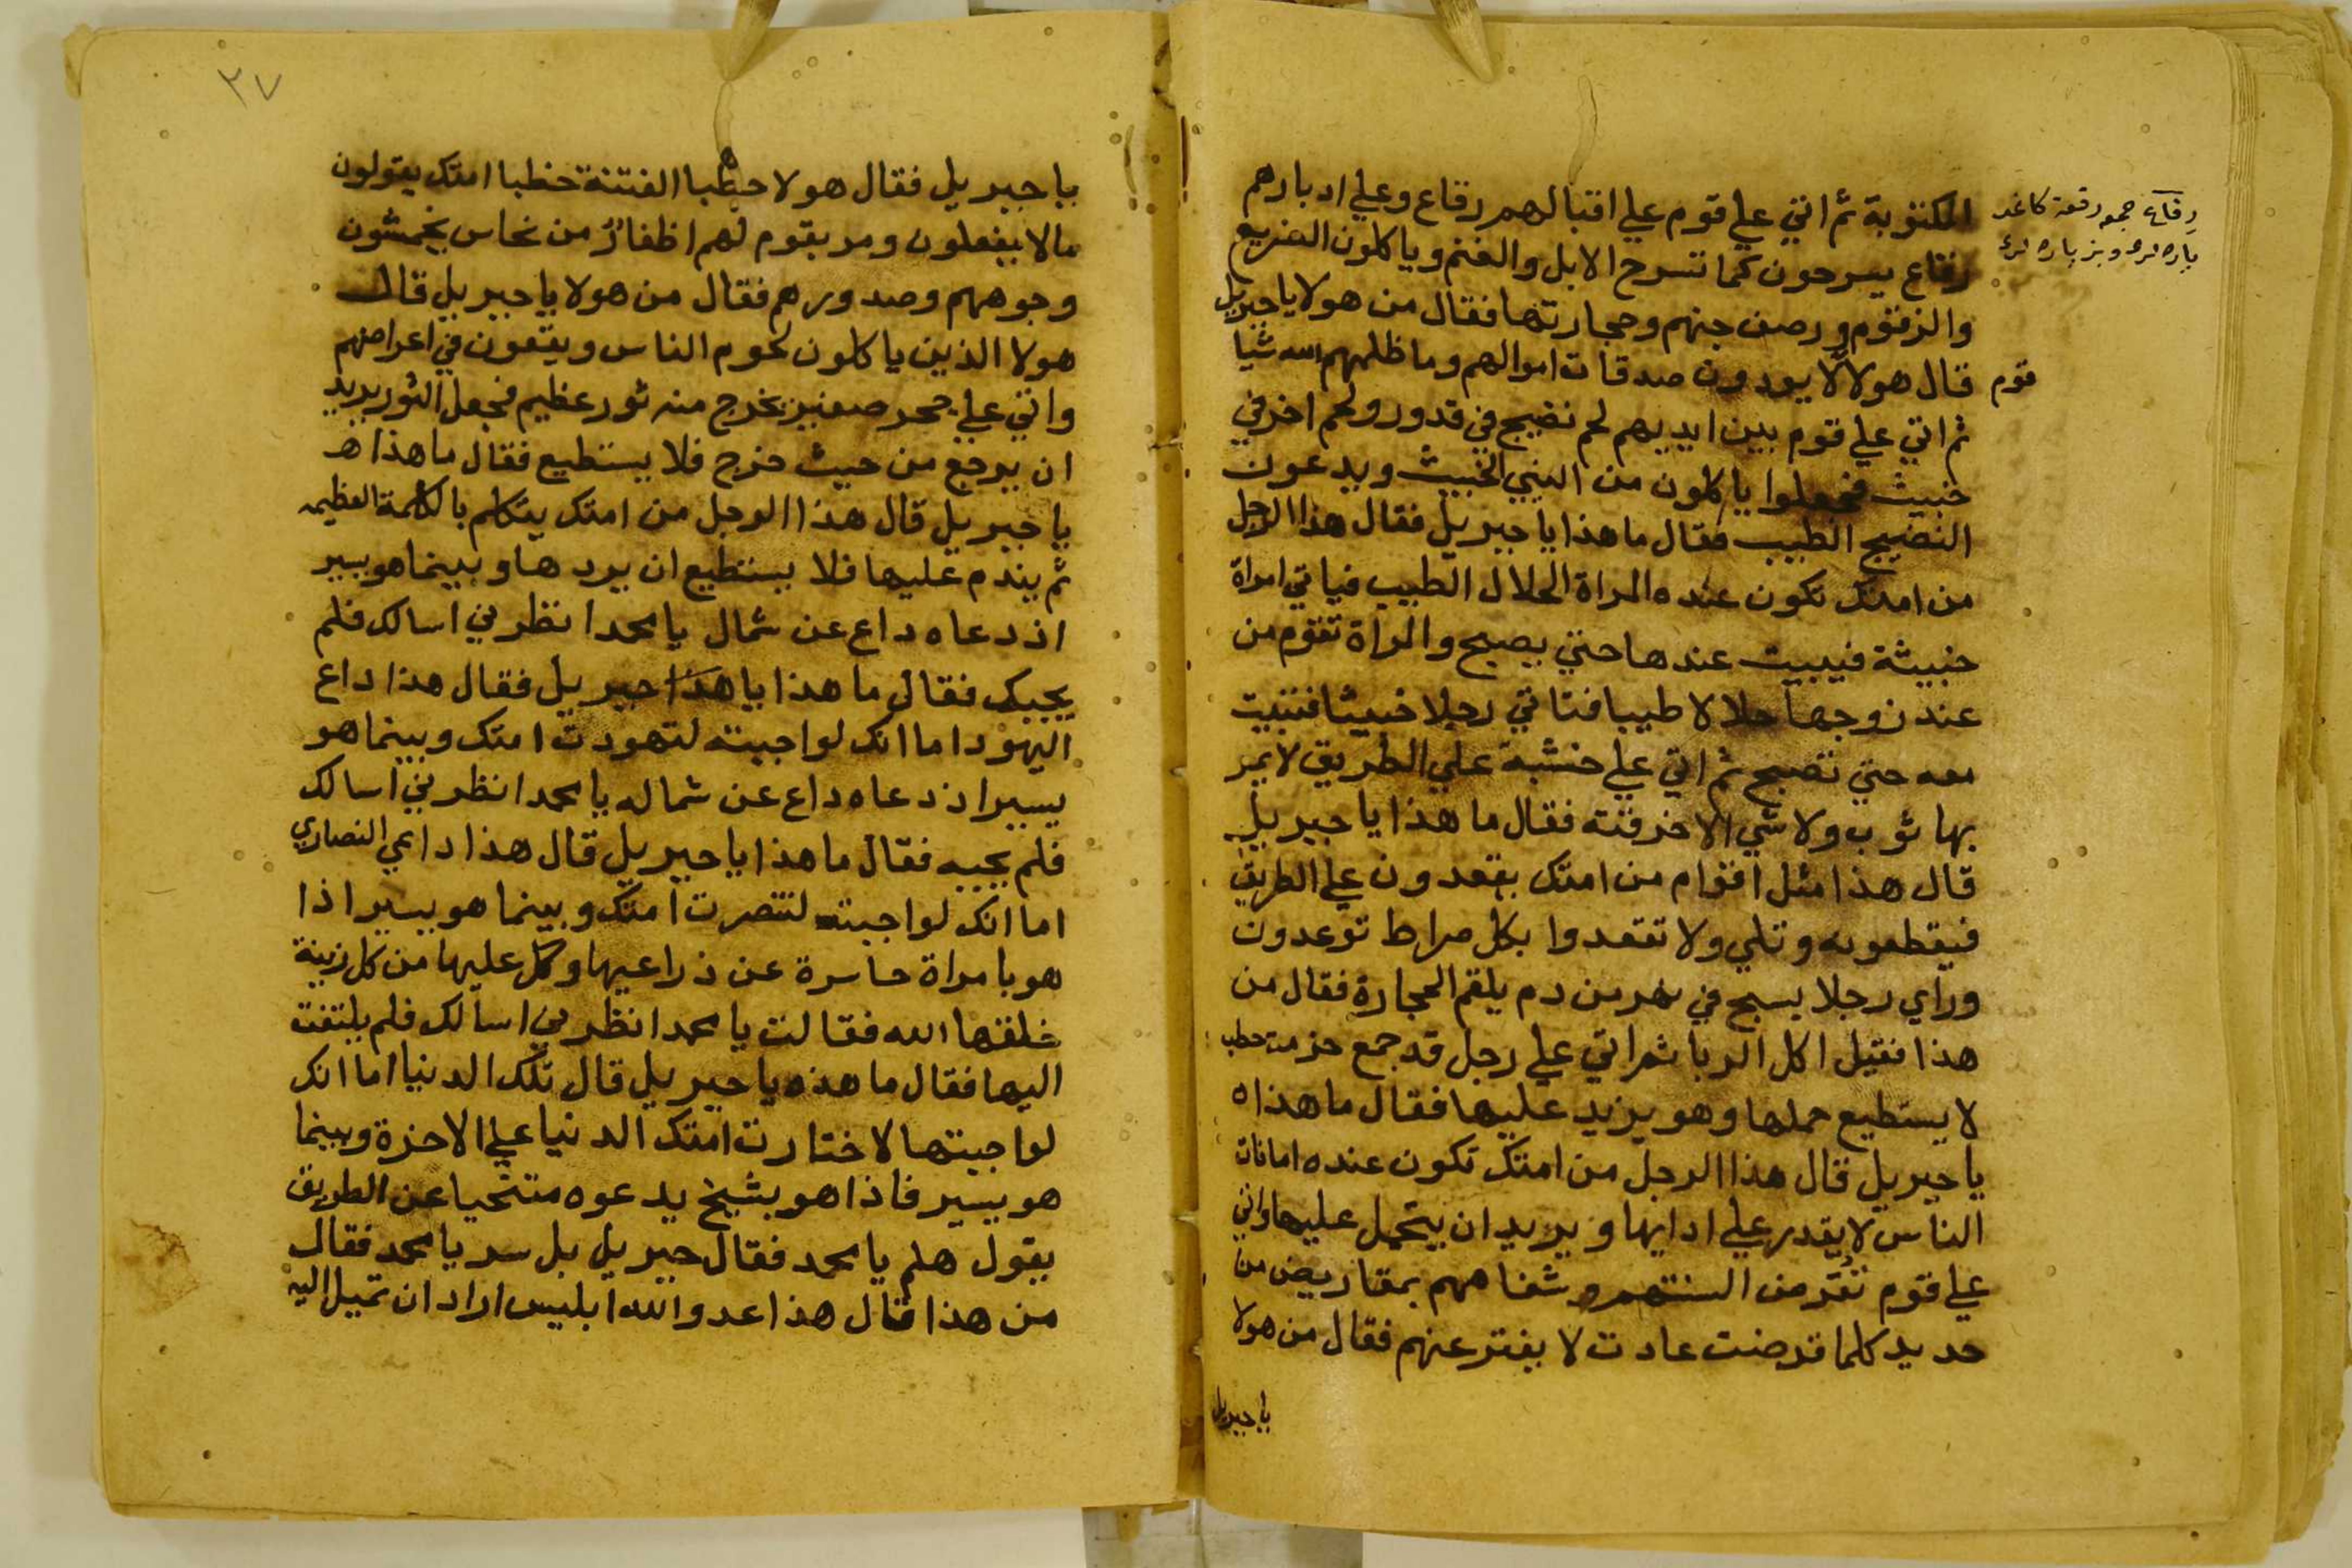 المكتوبة ثم اتي علي قوم علي اقبالهم رقاع وعلي ادبارهم
رقاع جمع رقعة كاغد
رقاع يسرحون كما تسرح الابل والغنم وياكلون الضريع
پاره لره وبز پاره لره
والزقوم ورصف جهنم وحجارتها فقال من هولا يا جبريل
قال هولا لا يودون صدقات اموالهم وما ظلمهم الله شيا
قوم
ثم اتي علي قوم بين ايديهم لحم نضيج في قدور ولحم اخر في
خبيث فجعلوا ياكلون من النيي الخبيث ويدعون
النضيج الطيب فقال ما هذا يا جبريل فقال هذا الرجل
من امتك تكون عنده المراة الحلال الطيب فياتي امراة
خبيثة فيبيت عندها حتي يصبح والمراة تقوم من
عند زوجها حلالا طيبا فتاتي رجلا خبيثا فتبيت
معه حتي تصبح ثم اتي علي خشبة علي الطريق لا يمر
بها ثوب ولا شي الا خرقته فقال ما هذا يا جبريل
قال هذا مثل اقوام من امتك يقعدون علي الطريق
فيقطعونه وتلي ولا تقعدوا بكل صراط توعدون
وراي رجلا يسبح في نهر من دم يلقم الحجارة فقال من
هذا فقيل اكل الربا ثم اتي علي رجل قد جمع حزمت حطب
لا يستطيع حملها وهو يزيد عليها فقال ما هذا ه
يا جبريل قال هذا الرجل من امتك تكون عنده امانات
الناس لا يقدر علي ادايها ويزيد ان يتحمل عليها واتي
علي قوم تقرض السنتهم وشفاههم بمقاريض من
حديد كلما قرضت عادت لا يفتر عنهم فقال من هولا
يا جبريل
٣٧
يا جبريل فقال هولا خطبا الفتنة خطبا امتك يقولون
مالا يفعلون ومر بقوم لهم اظفار من نحاس يخمشون
وجوههم وصدورهم فقال من هولا يا جبريل قال
هولا الذين ياكلون لحوم الناس ويقعون في اعراضهم
واتي علي جحر صغير يخرج منه ثور عظيم فجعل الثور يريد
ان يرجع من حيث خرج فلا يستطيع فقال ما هذا هـ
يا جبريل قال هذا الرجل من امتك يتكلم بالكلمة العظيمه
ثم يندم عليها فلا يستطيع ان يردها وبينما هو يسير
اذ دعاه داع عن شمال يا محمد انظرني اسالك فلم
يجبك فقال ما هذا يا هذا جبريل فقال هذا داع
اليهود اما انك لو اجبته لتهودت امتك وبينما هو
يسير اذ دعاه داع عن شماله يا محمد انظرني اسالك
فلم يجبه فقال ما هذا يا جبريل قال هذا داعي النصاري
اما انك لو اجبته لتنصرت امتك وبينما هو يسير اذا
هو بامراة حاسرة عن ذراعيها وكل عليها من كل زينة
خلقها الله فقالت يا محمد انظرني اسالك فلم يلتفت
اليها فقال ما هذه يا جبريل قال تلك الدنيا اما انك
لو اجبتها لاختارت امتك الدنيا علي الاخرة وبينما
هو يسير فاذا هو بشيخ يدعوه متنحيا عن الطريق
يقول هلم يا محمد فقال جبريل بل سر يا محمد فقال
من هذا قال هذا عدو الله ابليس اراد ان تميل اليه